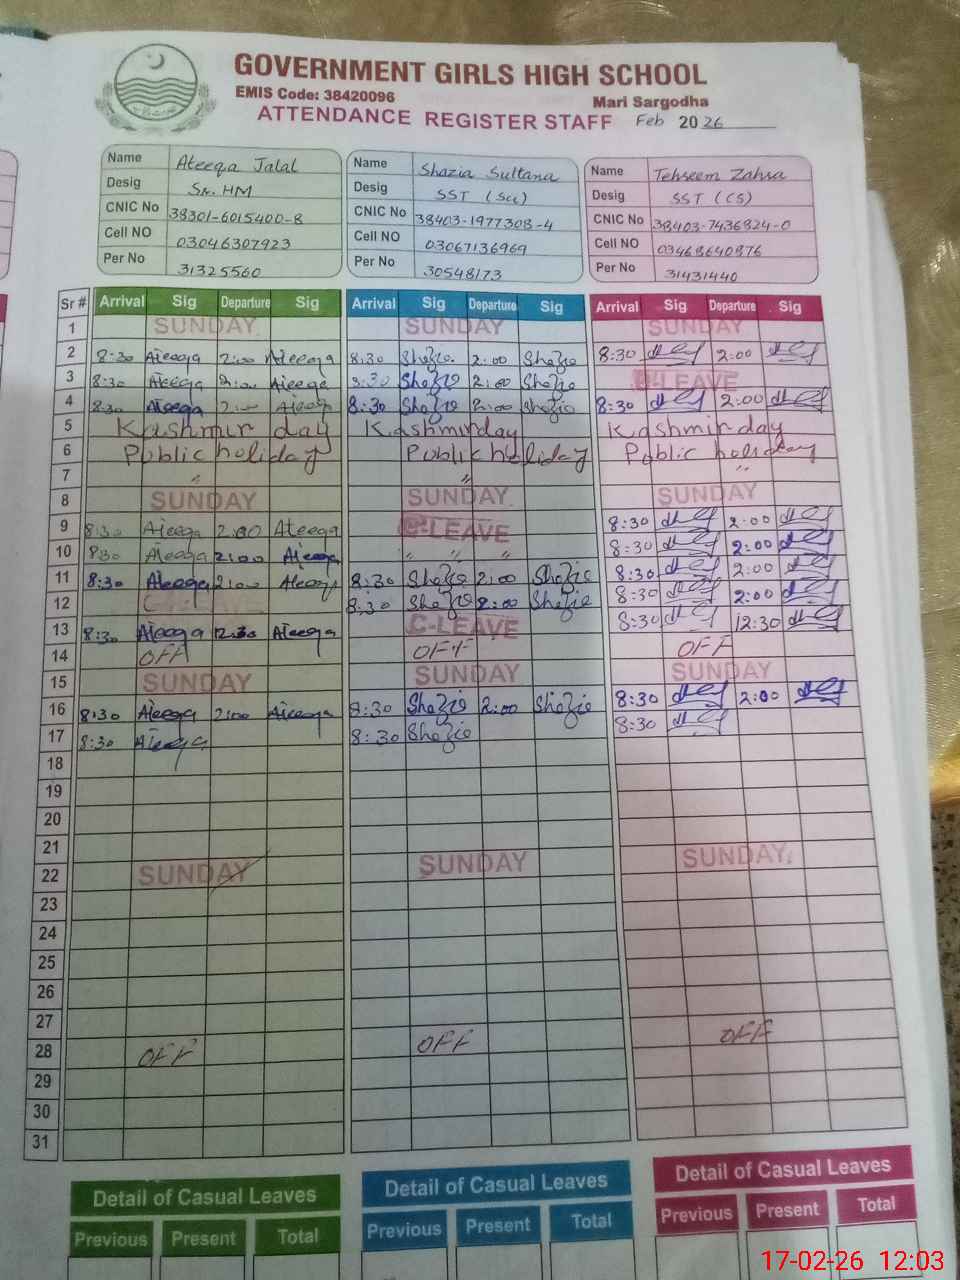 GOVERNMENT GIRLS HIGH SCHOOL
EMIS Code: 38420096 Mari Sargodha
ATTENDANCE REGISTER STAFF Feb 2026
Name Ateeqa Jalal Name Shazia Sultana Name Tehseem Zahra
Desig Sr. HM Desig SST (Sci) Desig SST (CS)
CNIC No 38301-6015400-8 CNIC No 38403-1977308-4 CNIC No 38403-7436824-0
Cell NO 03046307923 Cell NO 03067136969 Cell NO 03468640876
Per No 31325560 Per No 30548173 Per No 31431440
Sr # Arrival Sig Departure Sig Arrival Sig Departure Sig Arrival Sig Departure Sig
1 SUNDAY SUNDAY SUNDAY
2 8:30 Ateeqa 2:00 Ateeqa 8:30 Shazia 2:00 Shazia 8:30 2:00
3 8:30 Ateeqa 2:00 Ateeqa 8:30 Shazia 2:00 Shazia LEAVE
4 8:30 Ateeqa 2:00 Ateeqa 8:30 Shazia 2:00 Shazia 8:30 2:00
5 Kashmir day Kashmir day Kashmir day
6 Public holiday Public holiday Public holiday
7 " " "
8 SUNDAY SUNDAY SUNDAY
9 8:30 Ateeqa 2:00 Ateeqa C-LEAVE 8:30 2:00
10 8:30 Ateeqa 2:00 Ateeqa " " " 8:30 2:00
11 8:30 Ateeqa 2:00 Ateeqa 8:30 Shazia 2:00 Shazia 8:30 2:00
12 8:30 Shazia 2:00 Shazia 8:30 2:00
13 8:30 Ateeqa 12:30 Ateeqa C-LEAVE 8:30 12:30
14 OFF OFF OFF
15 SUNDAY SUNDAY SUNDAY
16 8:30 Ateeqa 2:00 Ateeqa 8:30 Shazia 2:00 Shazia 8:30 2:00
17 8:30 Ateeqa 8:30 Shazia 8:30
18
19
20
21
22 SUNDAY SUNDAY SUNDAY
23
24
25
26
27
28 OFF OFF OFF
29
30
31
Detail of Casual Leaves Detail of Casual Leaves Detail of Casual Leaves
Previous Present Total Previous Present Total Previous Present Total
17-02-26 12:03